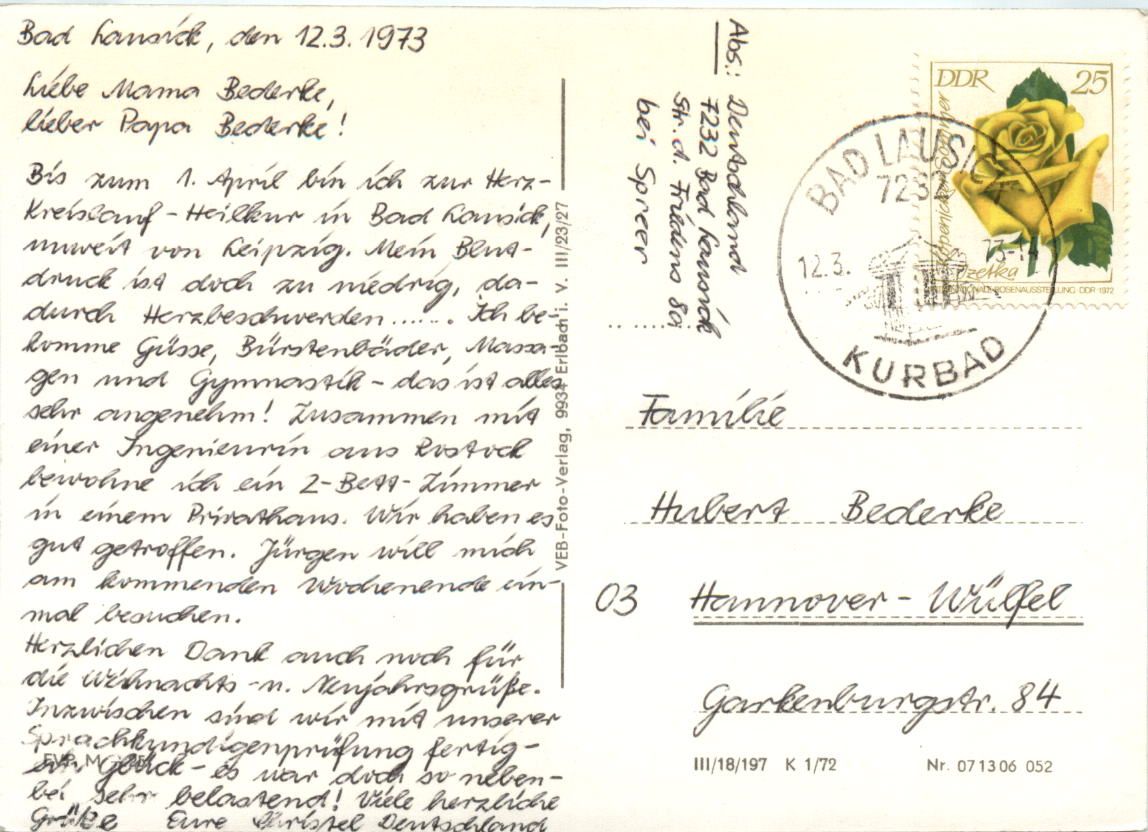 Bad Lausick, den 12.3.1973
Liebe Mama Bederke,
lieber Papa Bederke!
Bis zum 1. April bin ich zur Herz-
Kreislauf-Heilkur in Bad Lausick,
unweit von Leipzig. Mein Blut-
druck ist doch zu niedrig, da-
durch Herzbeschwerden....... Ich be-
komme Güsse, Bürstenbäder, Massa-
gen und Gymnastik - das ist alles
sehr angenehm! Zusammen mit
einer Ingenieurin aus Rostock
bewohne ich ein 2-Bett-Zimmer
in einem Privathaus. Wir haben es
gut getroffen. Jürgen will mich
am kommenden Wochenende ein-
mal besuchen.
Herzlichen Dank auch noch für
die Weihnachts- u. Neujahrsgrüße.
Inzwischen sind wir mit unserer
Sprachkundigenprüfung fertig -
ein Glück - es war doch so neben-
bei sehr belastend! Viele herzliche
Grüße Eure Christel Deutschland
EVP M
VEB-Foto-Verlag, 9934 Erlbach i. V. III/23/27
Abs: Deutschland
7232 Bad Lausick
Str. d. Friedens 80
bei Spreer
DDR 25
INTERNATIONALE ROSENAUSSTELLUNG DDR 1972
BAD LAUSICK
7232
12.3. 73-14
KURBAD
Familie
Hubert Bederke
03 Hannover-Wülfel
Garkenburgstr. 84
III/18/197 K 1/72 Nr. 071306 052